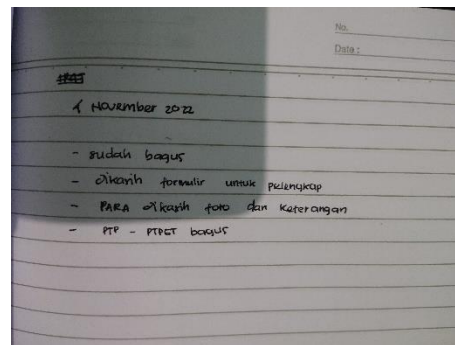 No.
Date :
1 November 2022
- sudah bagus
- dikasih formulir untuk pelengkap
- PARA dikasih foto dan keterangan
- PTP - PTPET bagus